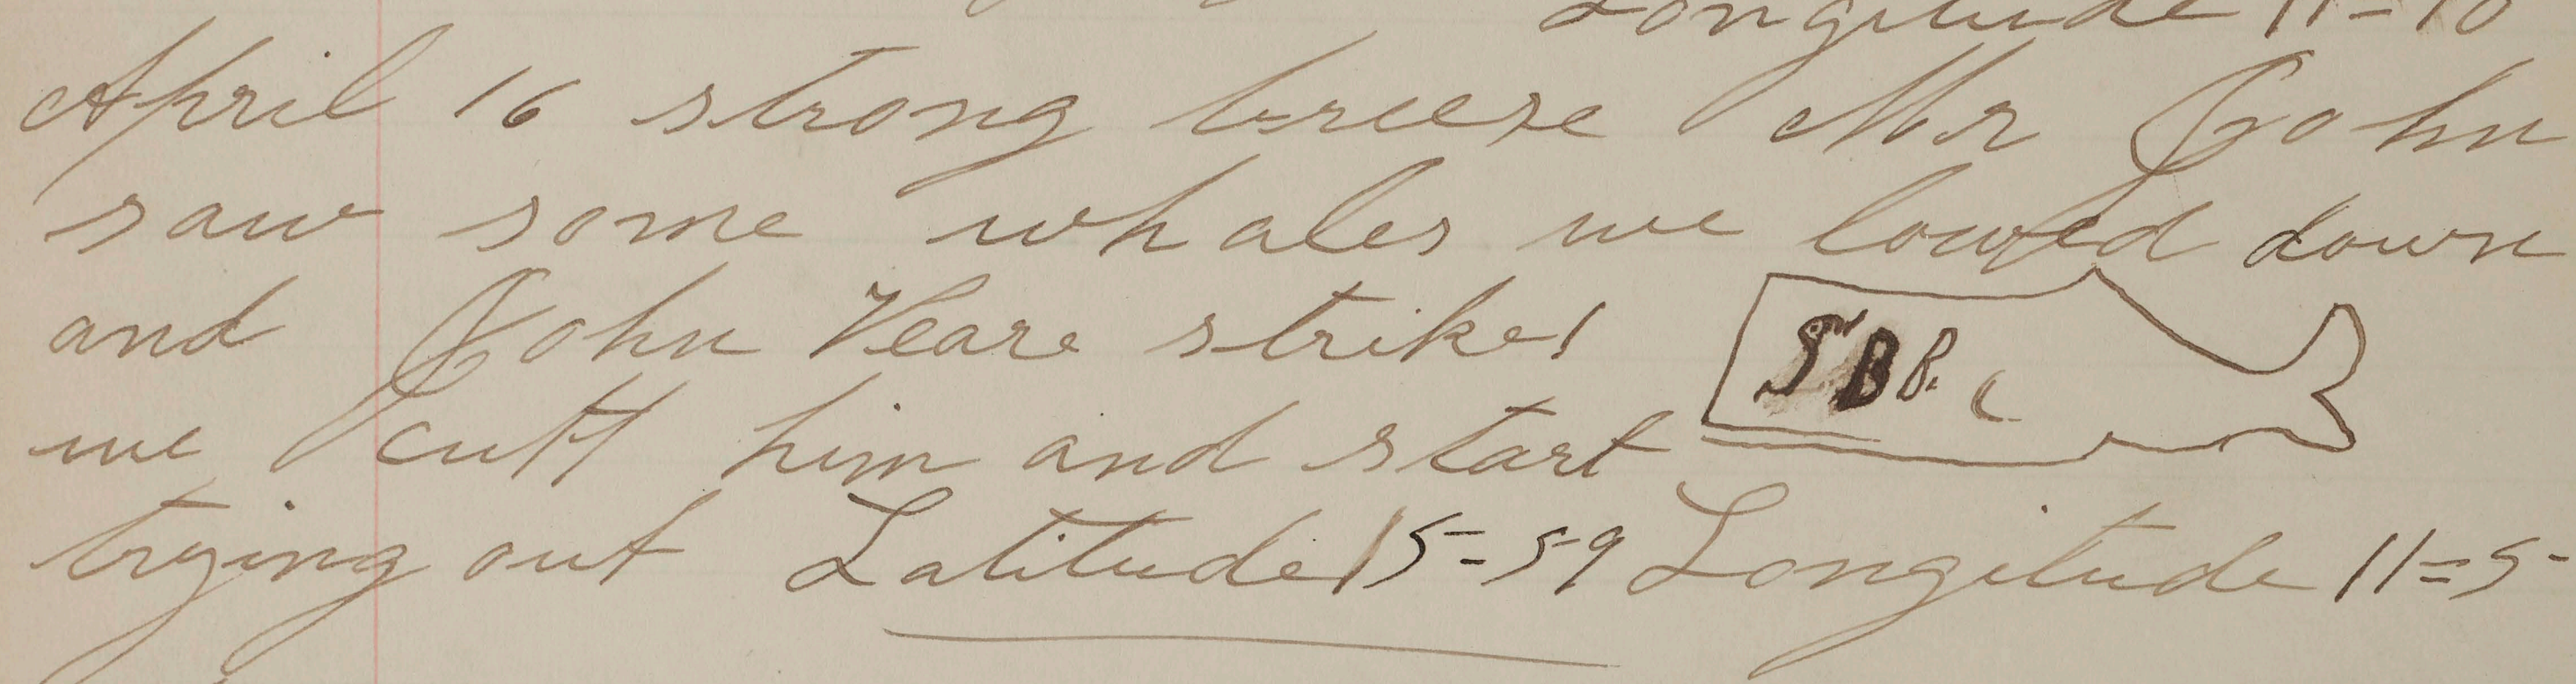 Longitude 11=10
April 16 strong breese Mr John
saw some whales we lowed down
and John Veara strike 1
S B B.
we cutt him and start
trying out Latitude 15=59 Longitude 11=5